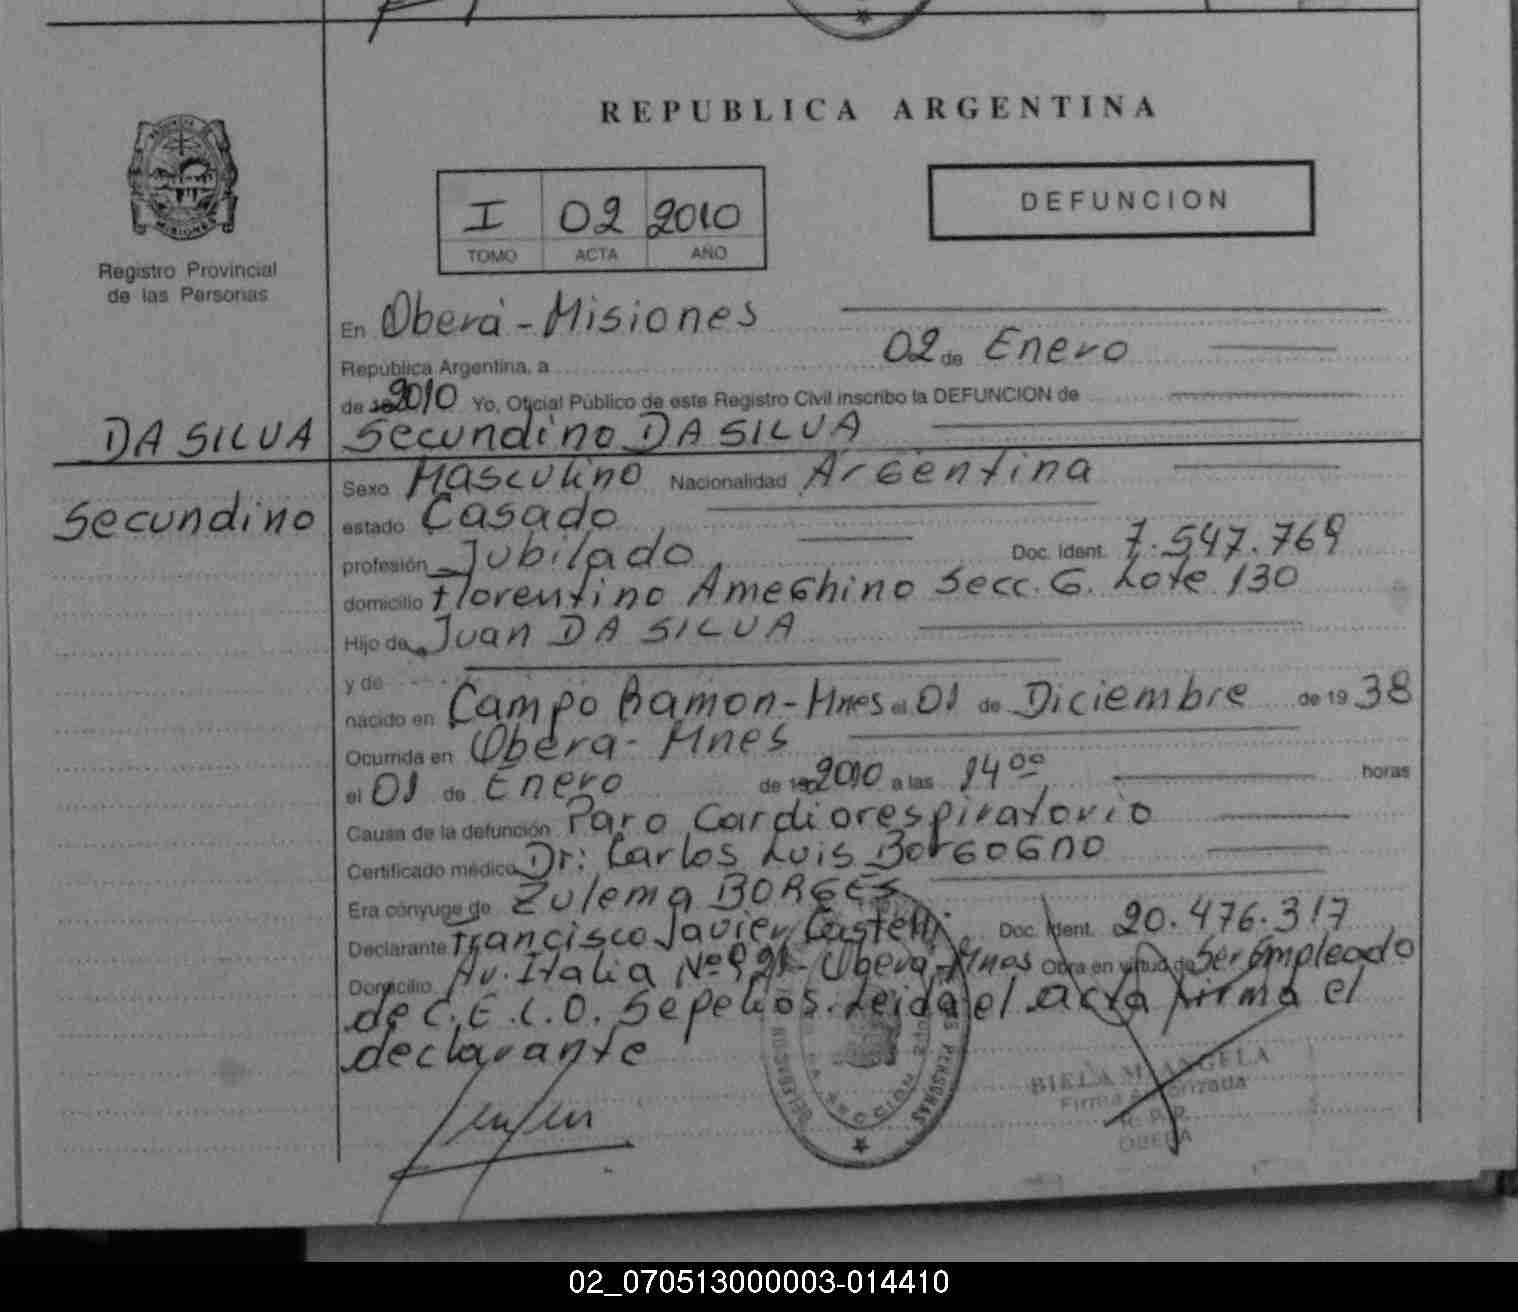 REPUBLICA ARGENTINA
PROVINCIA DE
MISIONES
Registro Provincial
de las Personas
I 02 2010
TOMO ACTA AÑO
DEFUNCION
En Oberá - Misiones
República Argentina, a 02 de Enero
de 2010 Yo, Oficial Público de este Registro Civil inscribo la DEFUNCION de
DA SILVA Secundino DA SILVA
Secundino
Sexo Masculino Nacionalidad Argentina
estado Casado
profesión Jubilado Doc. Ident. 7.547.769
domicilio Florentino Ameghino Secc. G. Lote 130
Hijo de Juan DA SILVA
y de
nacido en Campo Ramon - Mnes el 01 de Diciembre de 19 38
Ocurrida en Obera - Mnes
el 01 de Enero de 2010 a las 14 00 horas
Causa de la defunción Paro Cardiorespiratorio
Certificado médico Dr: Carlos Luis Borgogno
Era cónyuge de Zulema BORGES
Declarante Francisco Javier Castelli Doc. Ident. 20.476.317
Domicilio Av. Italia Nº Oberá - Mnes Obra en virtud de Ser Empleado
de C.E.L.O. Sepelios. Leida el acta firma el
declarante
PERSONAS
BIELA M. ANGELA
Firma Autorizada
R. P. P.
OBERA
02_070513000003-014410